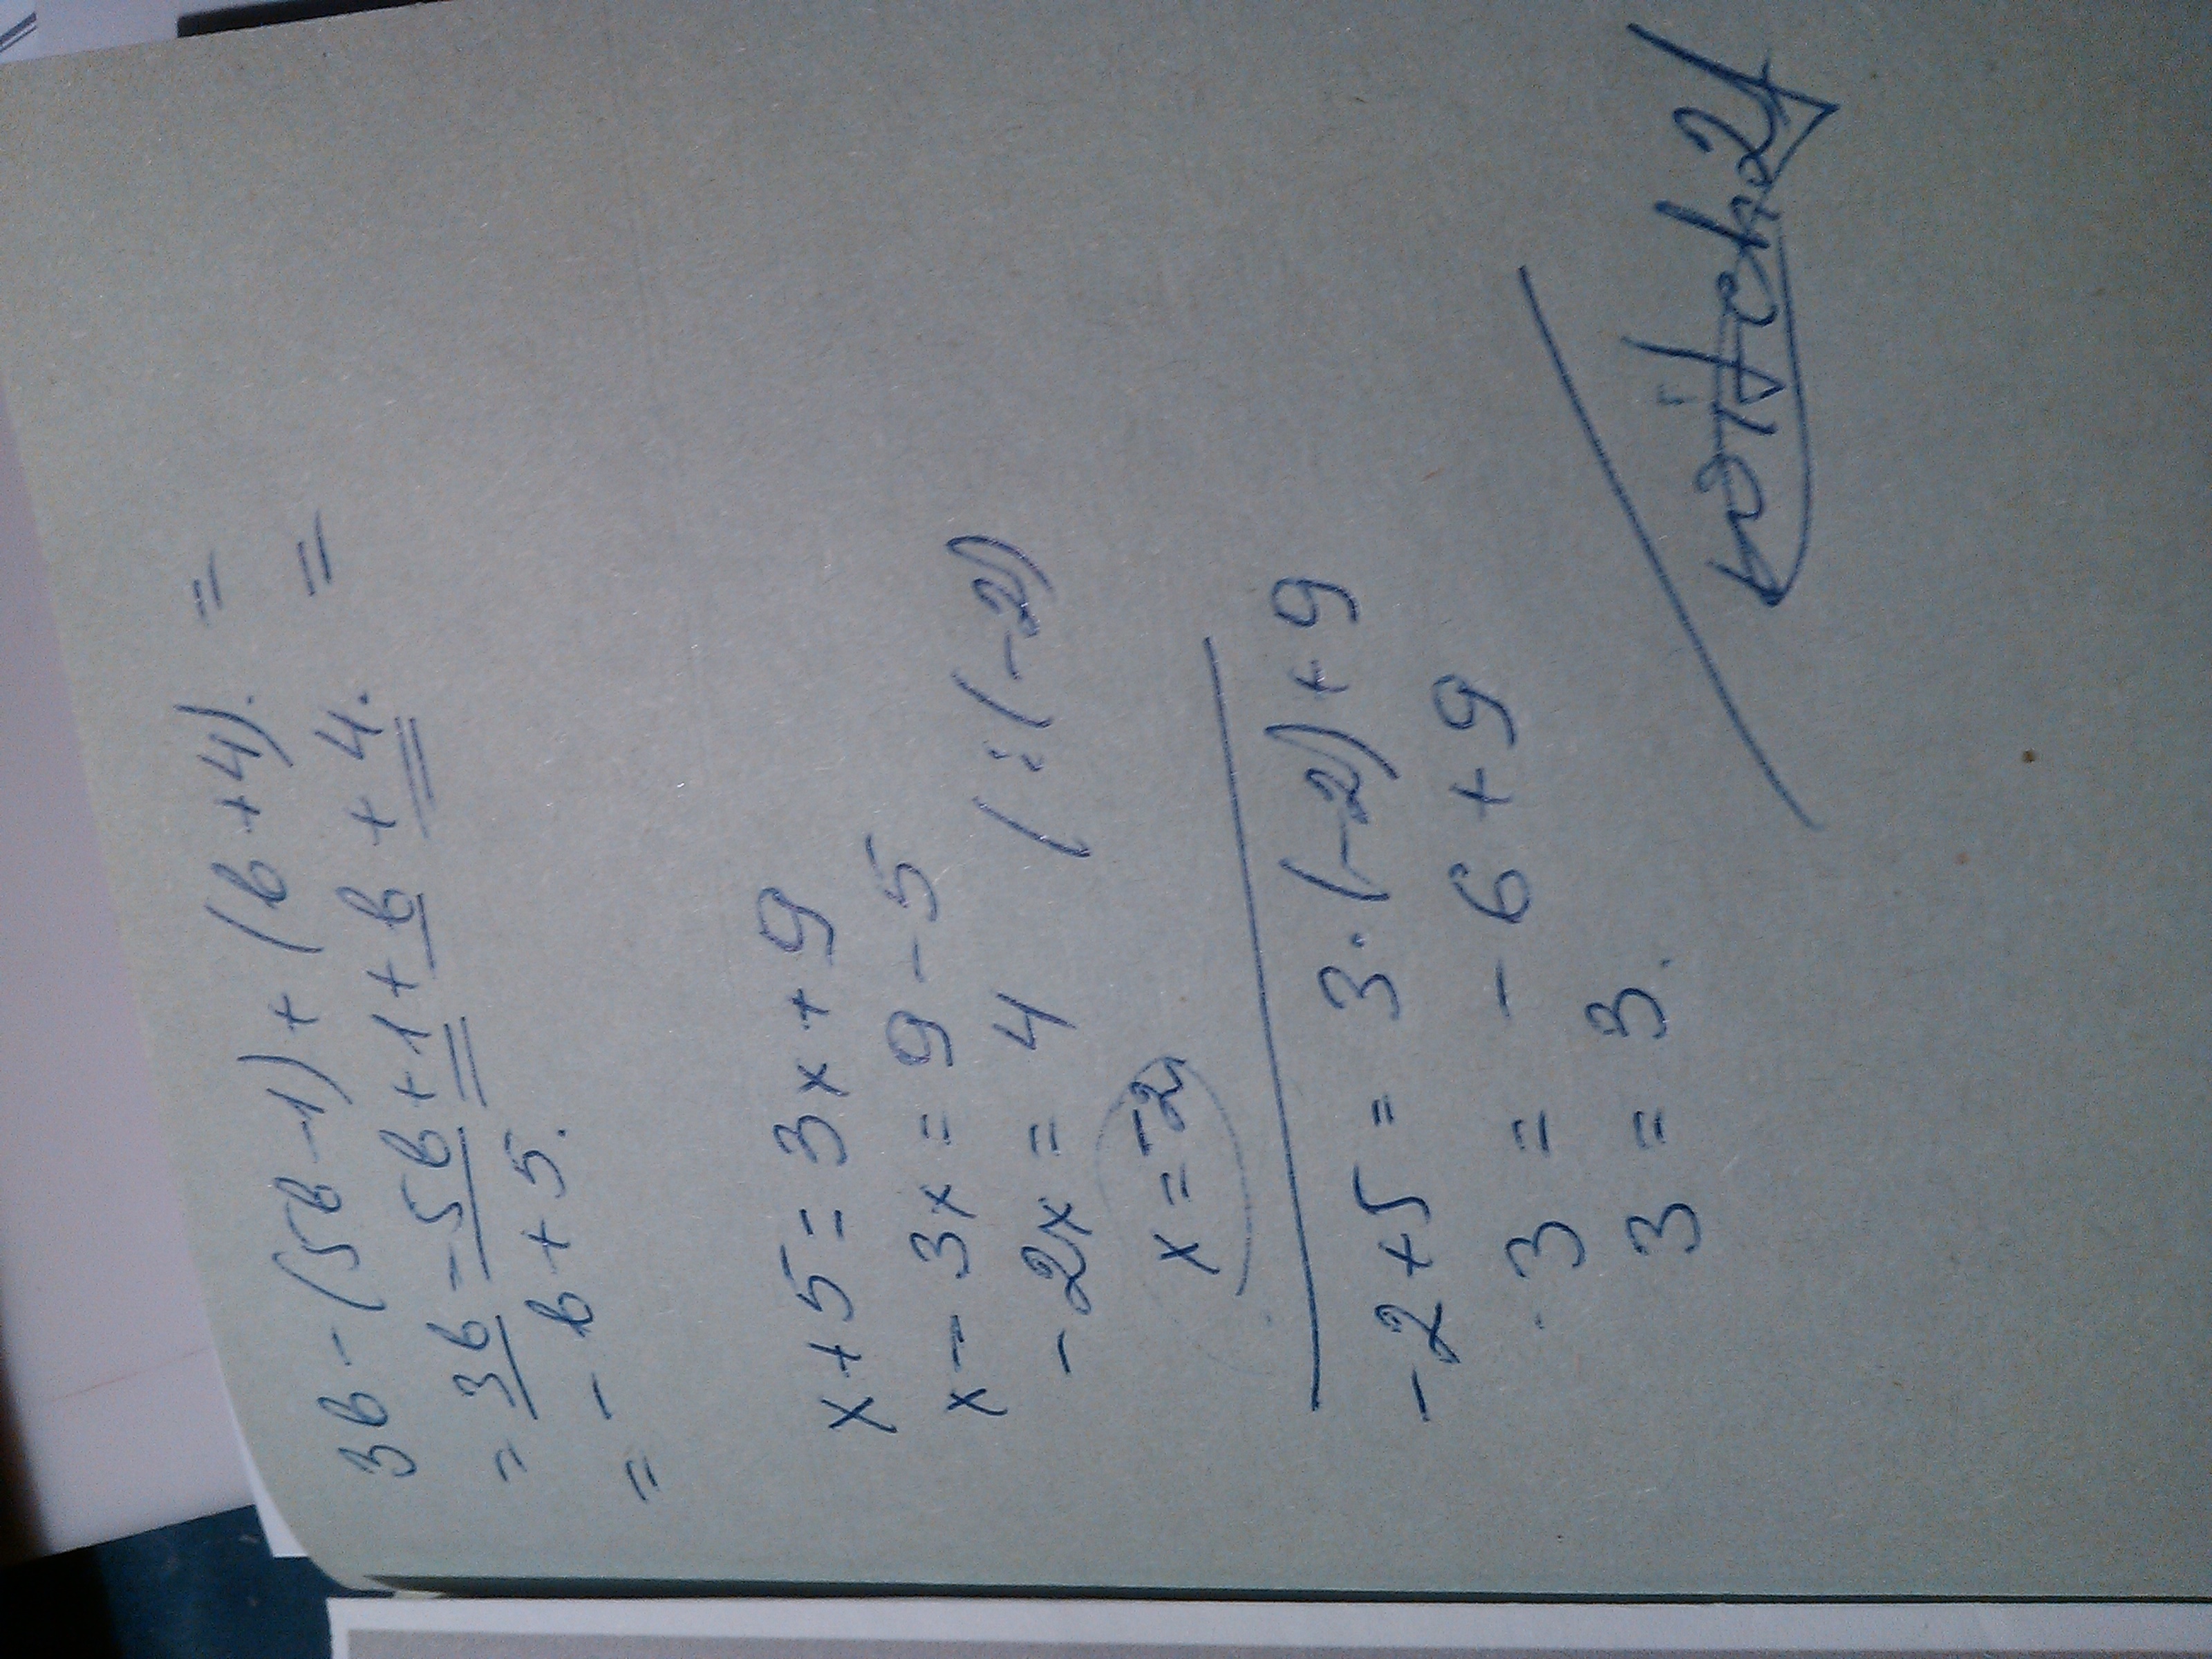 3b - (5b - 1) + (b + 4). =
= 3b - 5b + 1 + b + 4. =
= - b + 5.
x + 5 = 3x + 9
x - 3x = 9 - 5
- 2x = 4 / : (-2)
x = -2
-2 + 5 = 3 · (-2) + 9
3 = - 6 + 9
3 = 3.